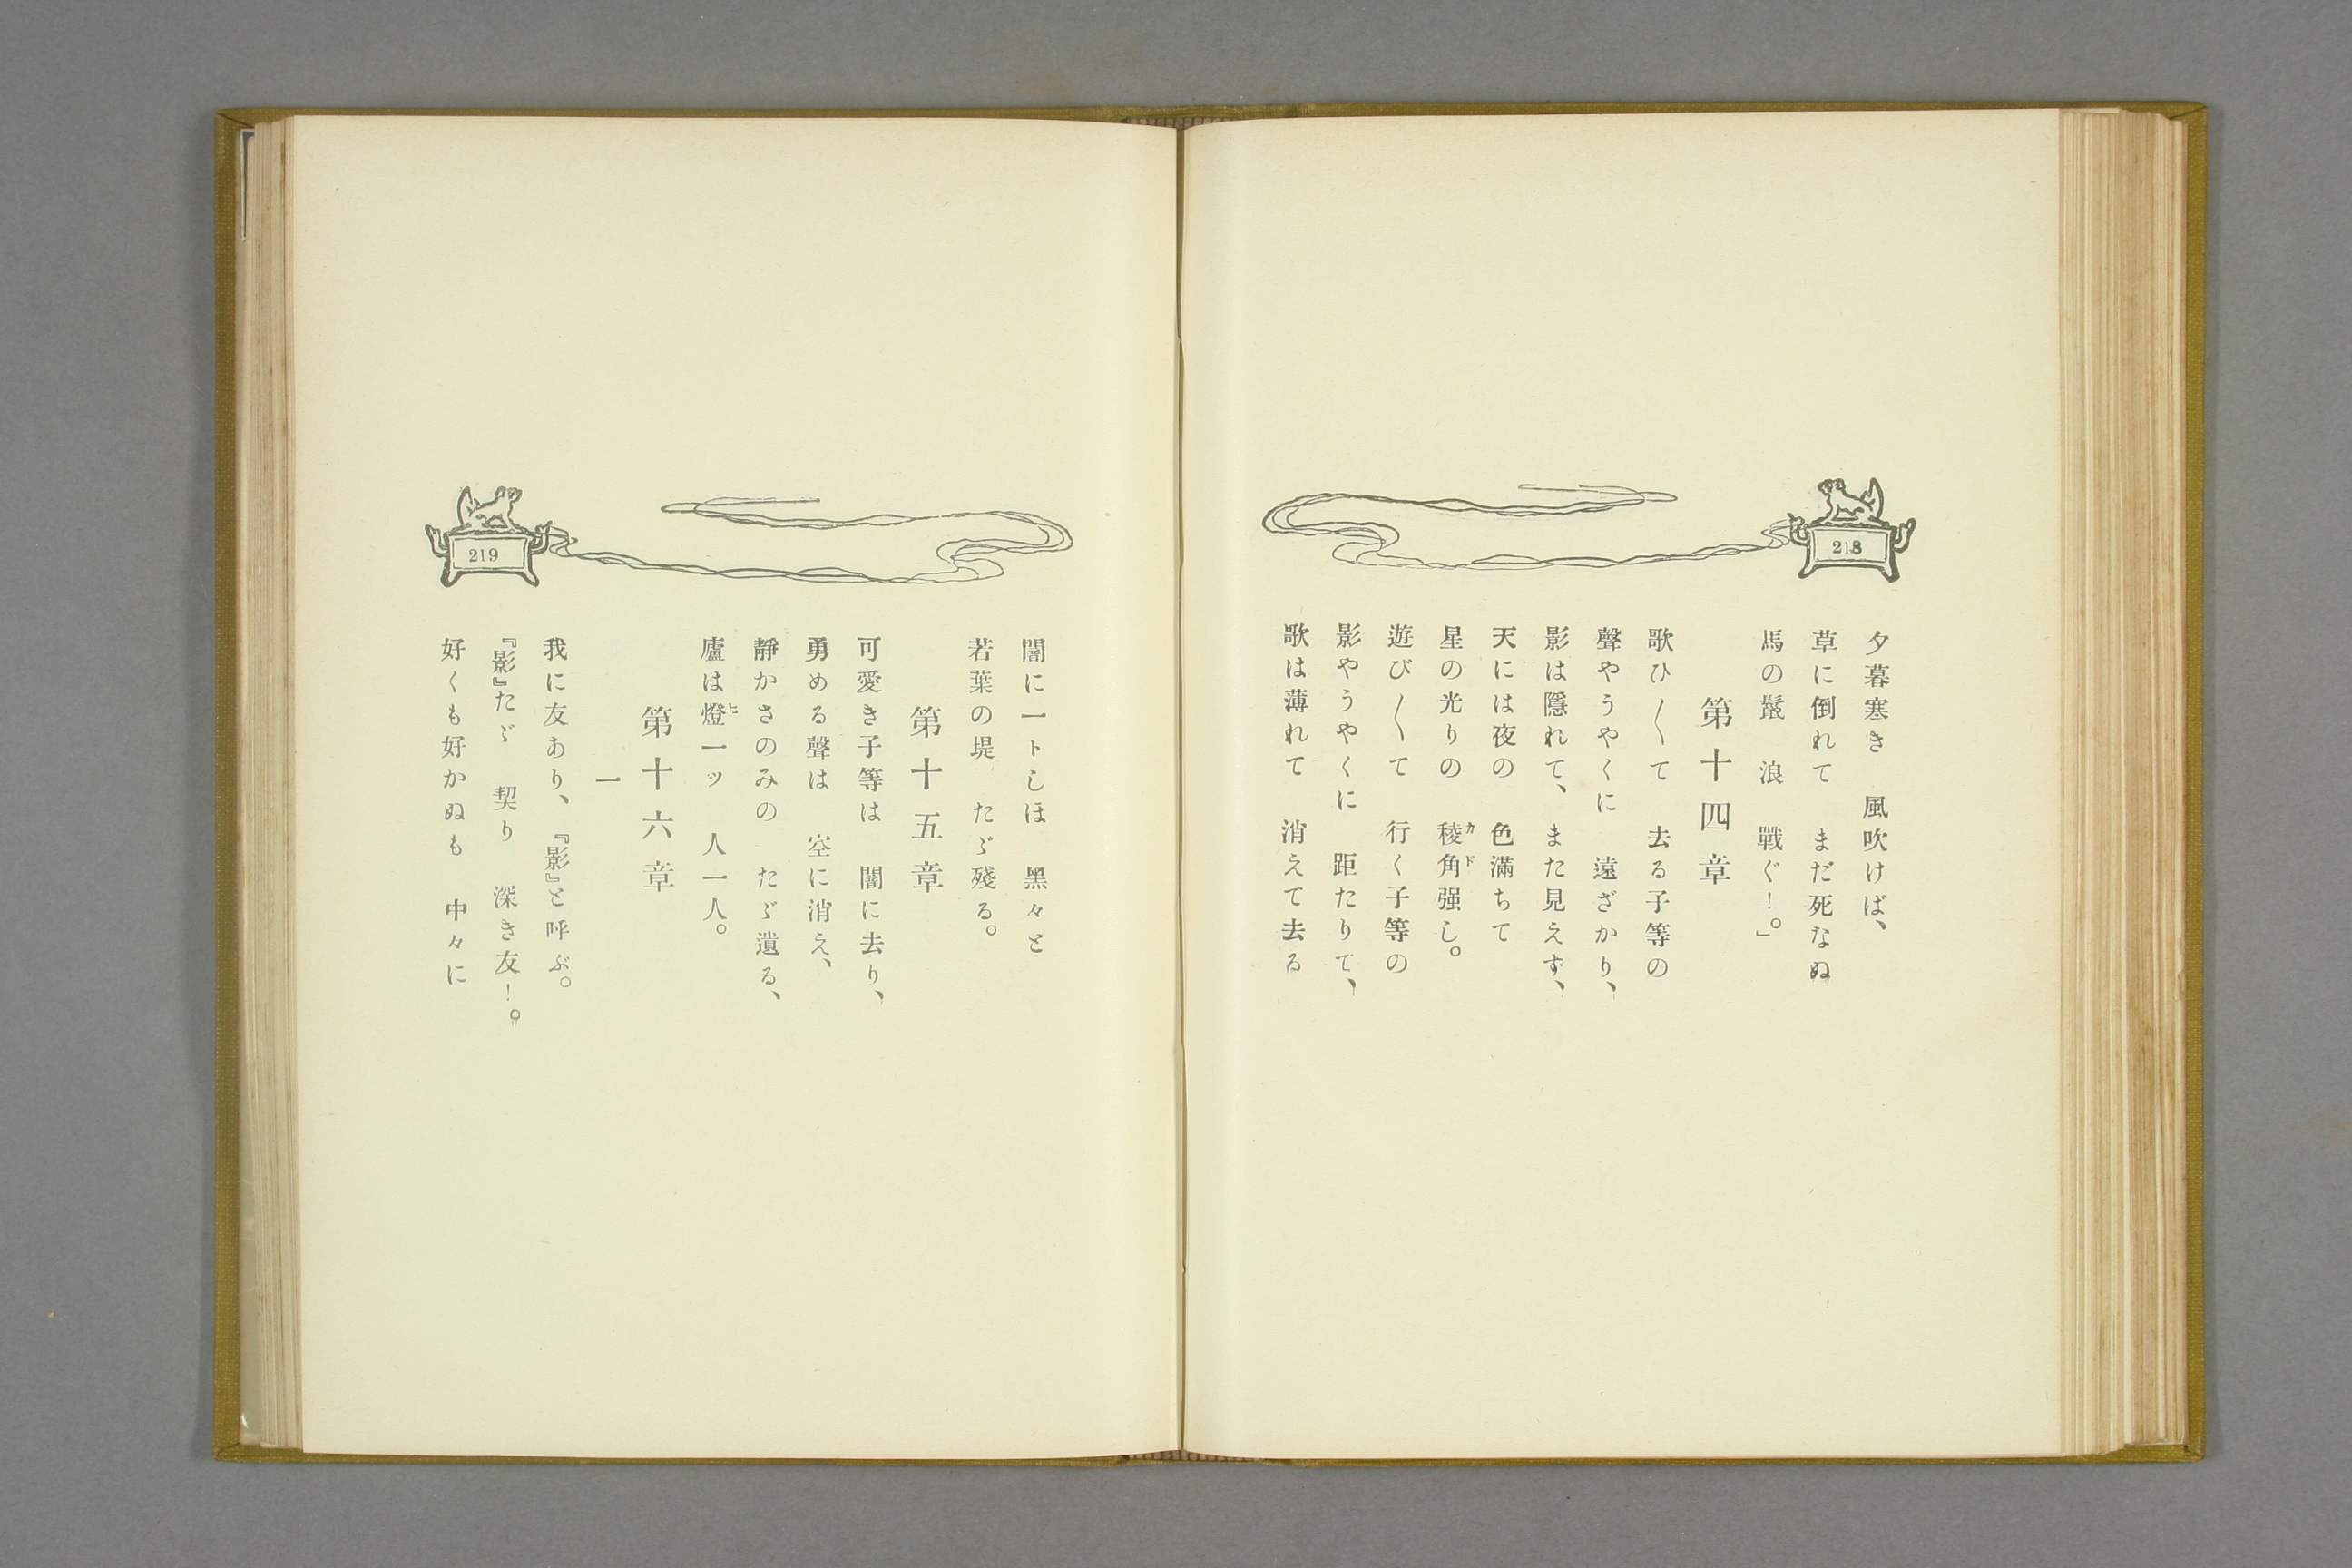 218
夕暮寒き　風吹けば、
草に倒れて　まだ死なぬ
馬の鬣　浪　戰ぐ！。」
第十四章
歌ひ〳〵て　去る子等の
聲やうやくに　遠ざかり、
影は隱れて、また見えず、
天には夜の　色滿ちて
星の光りの　稜角强し。
カド
遊び〳〵て　行く子等の
影やうやくに　距たりて、
歌は薄れて　消えて去る
219
闇に一トしほ　黑々と
若葉の堤　たゞ殘る。
第十五章
可愛き子等は　闇に去り、
勇める聲は　空に消え、
靜かさのみの　たゞ遺る、
廬は燈一ッ　人一人。
ヒ
第十六章
一
我に友あり、『影』と呼ぶ。
『影』たゞ　契り　深き友！。
好くも好かぬも　中々に